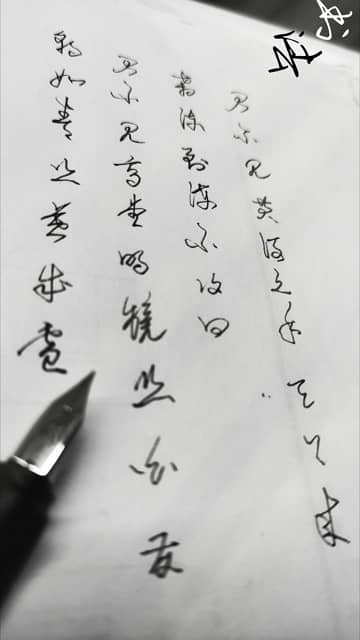 君不见黄河之水天上来
奔流到海不复回
君不见高堂明镜悲白发
朝如青丝暮成雪